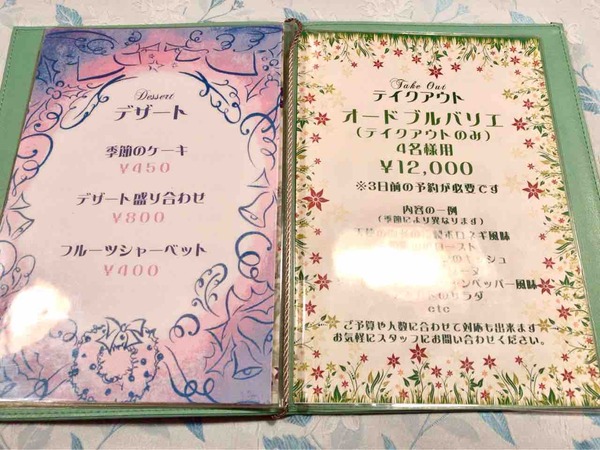 Dessert
デザート
季節のケーキ
¥450
デザート盛り合わせ
¥800
フルーツシャーベット
¥400
Take Out
テイクアウト
オードブルバリエ
(テイクアウトのみ)
4名様用
¥12,000
※3日前の予約が必要です
内容の一例
(季節により異なります)
ネギ風味
ースト
シュ
ーヌ
ンペッパー風味
サラダ
etc
ご予算や人数に合わせて対応も出来ます
お気軽にスタッフにお問い合わせください。